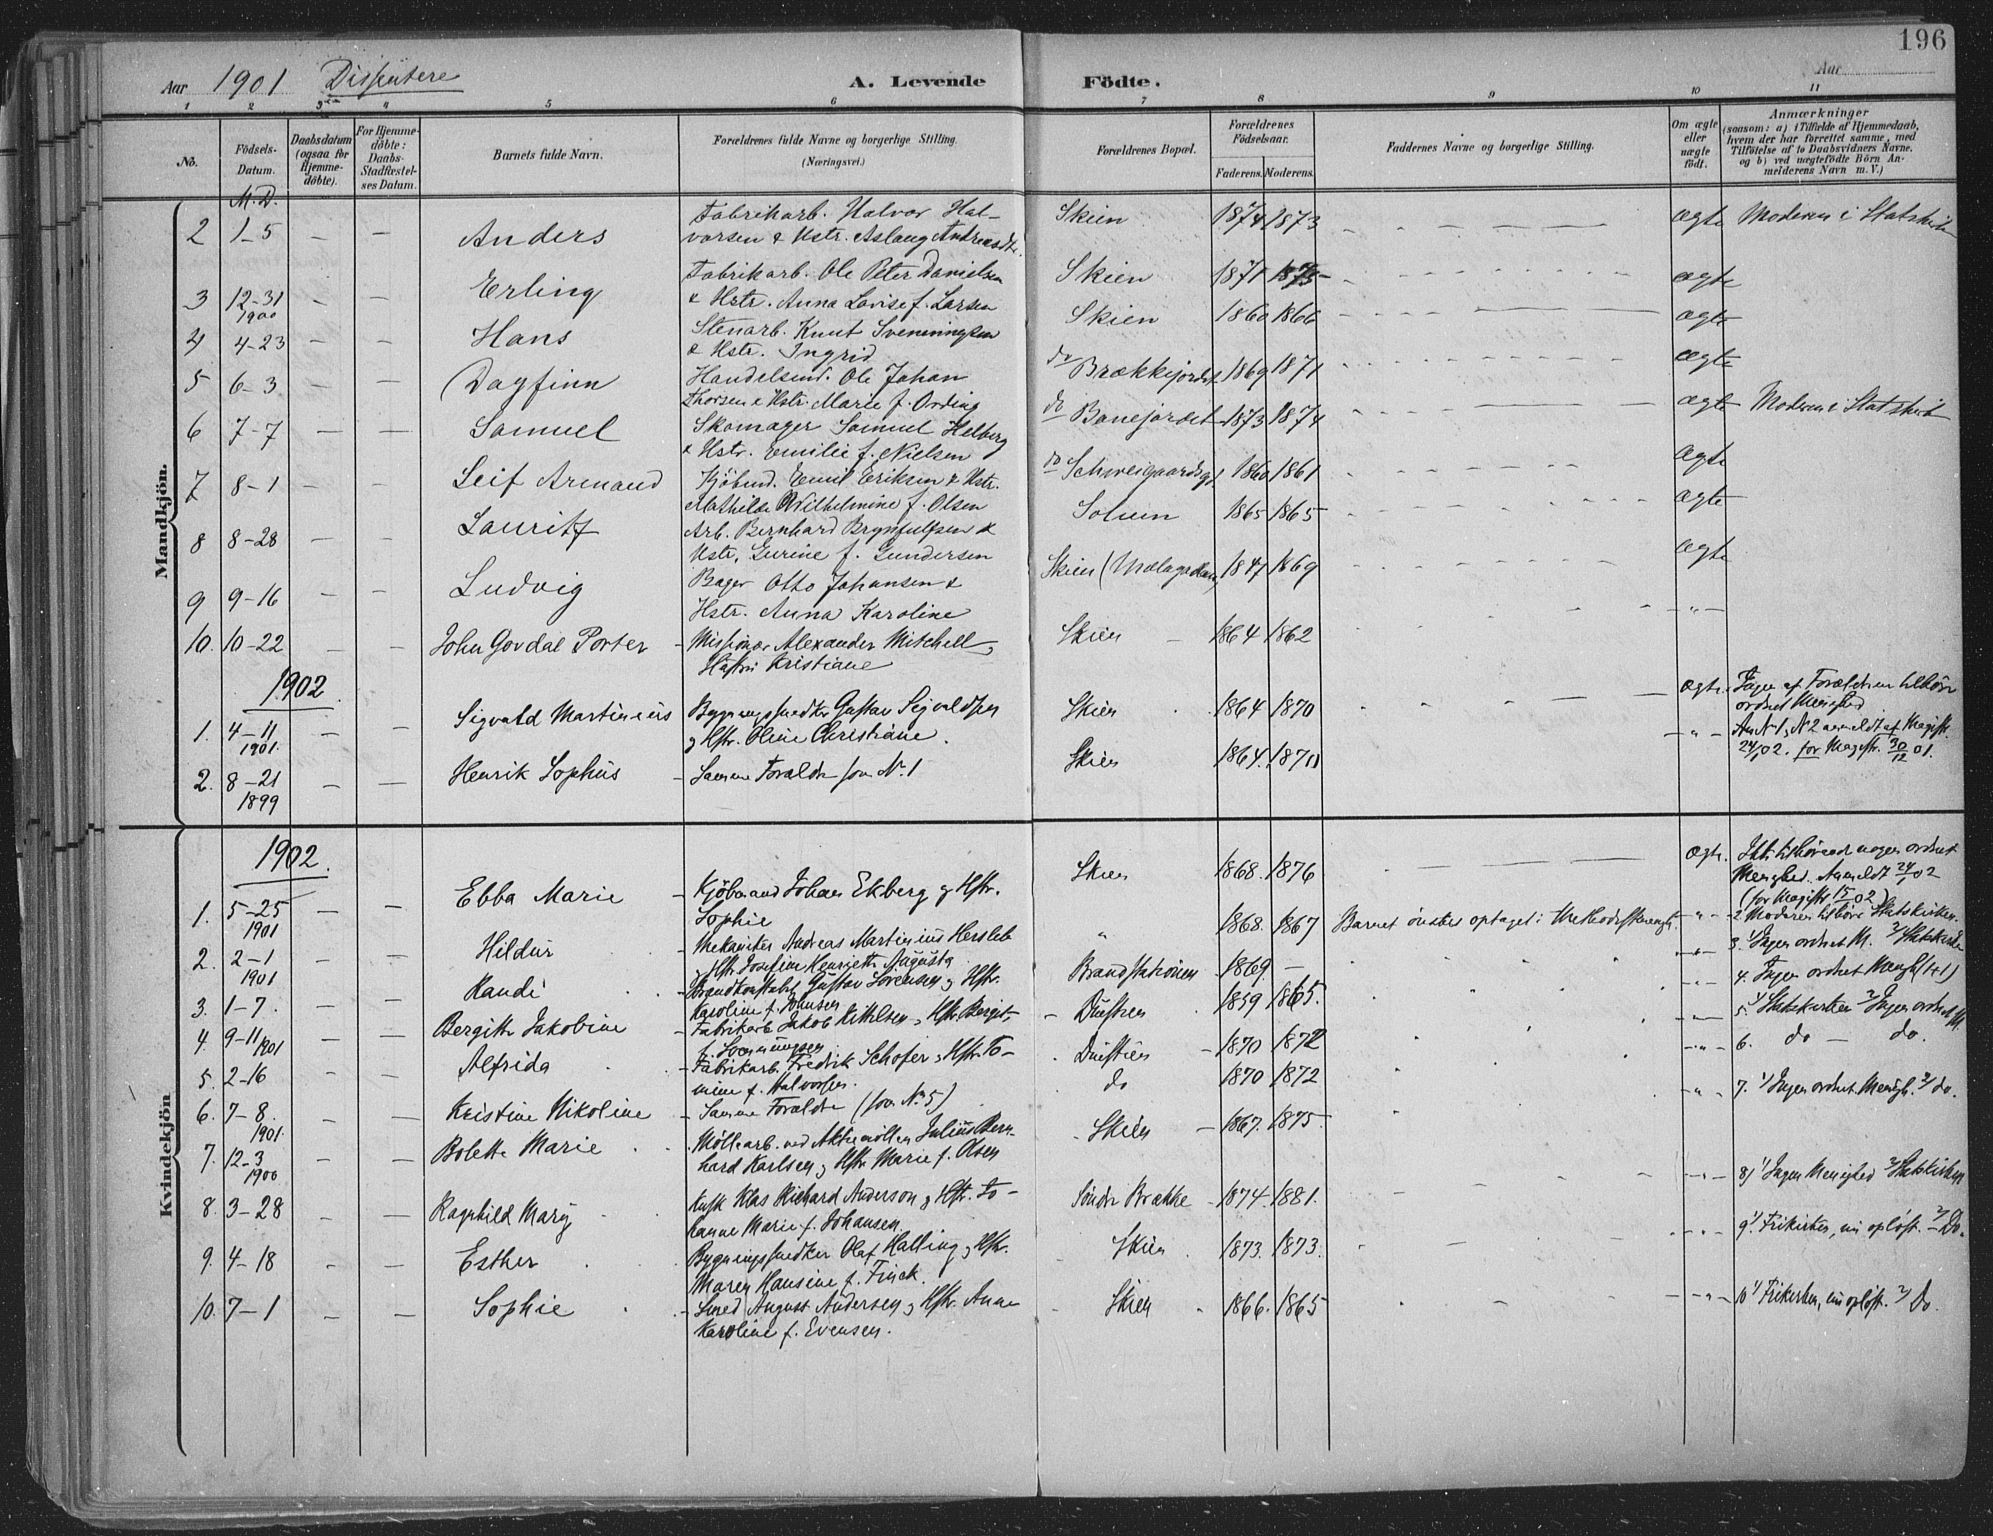 196
Aar 1901 Dissentere A. Levende Födte. Aar
1 2 3 4 5 6 7 8 9 10 11
No.
Födsels-Datum.
Daabsdatum (ogsaa for Hjemme-döbte).
For Hjemme-döbte: Daabs-Stadfæstel-ses Datum.
Barnets fulde Navn.
Forældrenes fulde Navne og borgerlige Stilling. (Næringsvei.)
Forældrenes Bopæl.
Forældrenes Födselsaar.
Faderens. Moderens.
Faddernes Navne og borgerlige Stilling.
Om ægte eller uægte födt.
Anmærkninger (saasom: a) i Tilfælde af Hjemmedaab, hvem der har forrettet samme, med Tilföielse af to Daabsvidners Navne, og b) ved uegtefödte Börn An-melderens Navn m. V.)
Mandkjön.
M. D.
2 1-5 — — Anders Fabrikarb. Halvor Hal- Skien 1874 1873 ægte Moderen i Statskirken
vorsen & Hstr. Aslaug Andreasdt.
3 12-31 — — Erling Fabrikarb. Ole Peter Danielsen Skien 1871 1875 ægte
1900 & Hstr. Anna Lovise f. Larsen
4 4-23 — — Hans Stenarb. Knut Sveningsen Skien 1860 1866 ægte
& Hstr. Ingrid
5 6-3 — — Dagfinn Handelsmd. Ole Johan do Brækkejordet 1869 1871 ægte
Thorsen & Hstr. Marie f. Ording
6 7-7 — — Samuel Skomager Samuel Helberg do Banejordet 1873 1874 ægte Moderen i Statskirk
& Hstr. Emilie f. Nielsen
7 8-1 — — Leif Armand Kjöbmd. Emil Eriksen & Hstr. do Schweigaardsg. 1860 1861 ægte
Mathilde Wilhelmine f. Olsen
8 8-28 — — Lauritz Arb. Bernhard Brynjulfsen & Solum 1865 1865 ægte
Hstr. Gurine f. Gundersen
9 9-16 — — Ludvig Bager Otto Johansen & Skien 1847 1869 ægte
Hstr. Anna Karoline
10. 10-22 — — John Govdal Porter - Missionær Alexander Mitchell, Skien 1864 1862 -"-
Hustru Kristiane
1902
1. 4-11 — — Sigvald Martinius Bygningssnedker Gustav Sigvaldsen Skien 1864 1870 Ægte. Ingen af Forældrene tilhörer
1901. og Hstr. Oline Christiane. ordnet Menighed
2. 8-21 — — Henrik Sophus - Samme Forældre som No. 1 Skien 1864. 1870 - " - Am N 1, N 2 anmeldt af Magistr.
1899 24/1 02. for Magistr. 30/12 01.
Kvindekjön
1902.
1. 5-25 — — Ebba Marie - Kjöbmand Johan Ekberg og Hstr. Skien 1868. 1876 Ægte. Ikke tilhörende nogen ordnet
1901 Sophie Menighed. Anmeldt 24/1 02
(for Magistr. 15/1 02)
2. 2-1 — — Hildur Mekaniker Andreas Martinius Hersleb " 1868. 1867 Barnet önskes optaget i Methodistkmengh. -"- 2. Moderen tilhörer Statskirken.
1901 og Hstr. Josefine Henriette Augusta
3. 1-7. — — Randi Brandkonstabel Gustav Sörensen og Hstr. Brandstationen 1869 — -"- 3. 1/ Ingen ordnet M. 2/ Statskirke
Karoline f. Johnsen
4. 9-11 1901 — — Bergitte Jakobine - Fabrikarb. Jakob Kittilsen, Hstr. Bergit, - 1859 1865. -"- 4. Ingen ordnet Mengh (1+1)
5. 2-16 — — Alfrida Fabrikarb. Fredrik Schofer, Hstr. To- 1870 1872 5. 1/ Statskirken 2/ Ingen ordnet M.
mine f. Halvorsen
6. 7-8. — — Kristine Nikoline - Samme Forældre (som No. 5) do 1870 1872 -"- 6. do — do.
1901.
7. 12-3 — — Bolette Marie Möllearb. ved Aktiemöllen Julius Bern- Skien 1867. 1875 -"- 7. 1/ Ingen ordnet Menigh. 2/ do.
1900 hard Karlsen og Hstr Marie f. Olsen
8. 3-28 — — Ragnhild Mary Kusk Klas Richard Anderson og Hstr. Jo- Söndre Brække 1874. 1881. -"- 8) 1/ Ingen Menighed 2/ Statskirken
hanne Marie f. Johansen.
9. 4-18 — — Esther Bygningssnedker Olaf Halling og Hstr. Skien 1873. 1873. -"- 9. 1/ Frikirken, nu oplöst. 2/ Do.
Maren Hansine f. Finck.
10. 7-1 — — Sophie - Smed August Andersen og Hstr. Anne Skien 1866. 1865 -"- 10 1/ Frikirken, nu oplöst. 2/ Do.
Karoline f. Evensen.